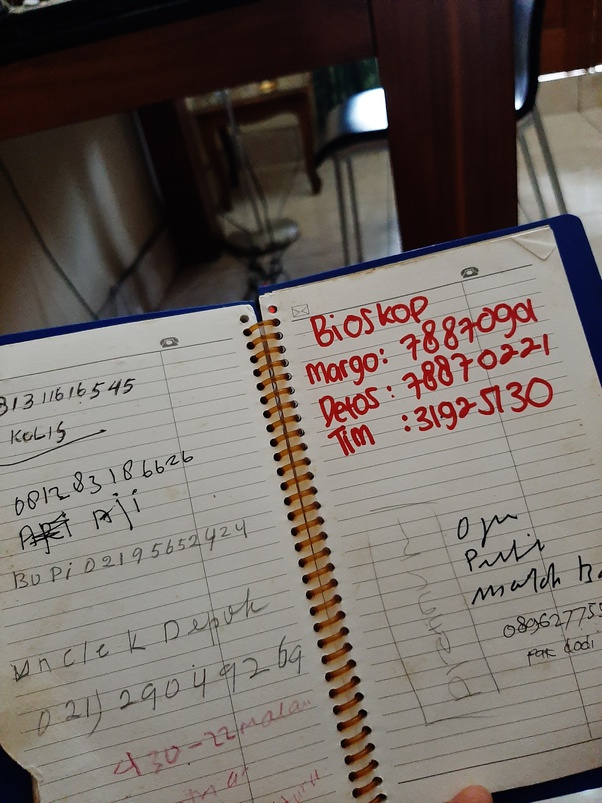 81311616545
KOLIS
081283186626
Aji
BUPi 02195652424
Uncle K Depok
021) 29049269
430-22 malam
Bioskop
Margo: 78870901
Detos: 78870221
Tim : 31925130
089627755
Pak dodi